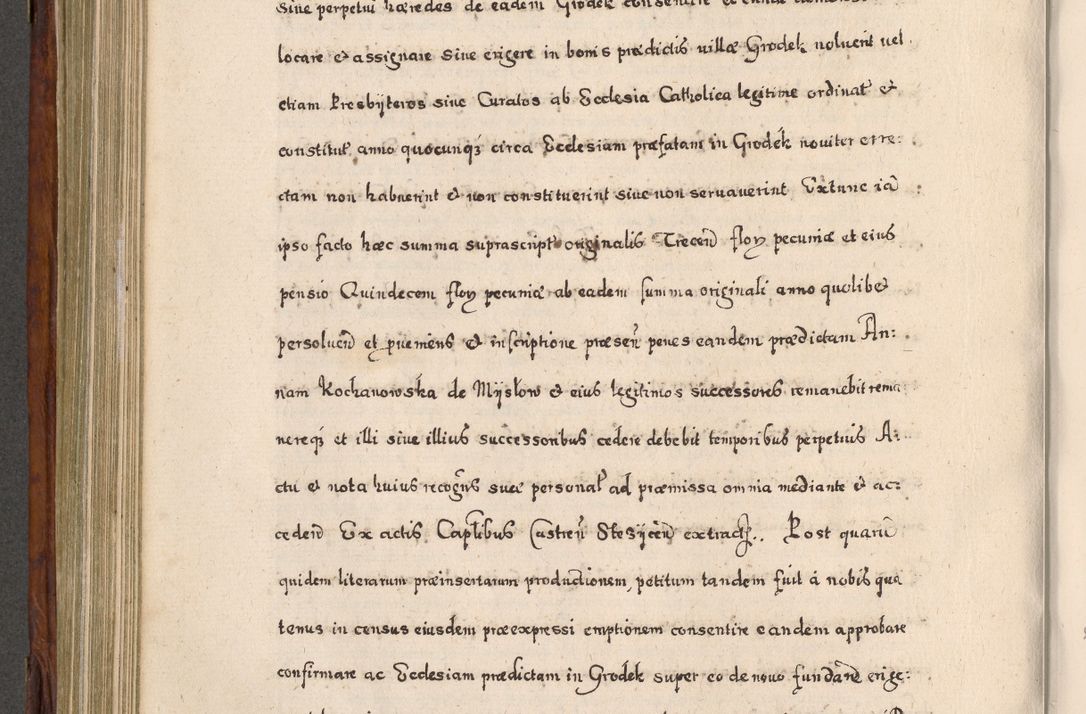 Siue perpetui hæredes de eadem Grodek consentire et
locare & assignare Siue erigere in bonis prædictis villæ Grodek noluerit vel
etiam Presbÿteros siue Curatos ab Ecclesia Catholica legitime ordinat̃ &
constitut̃ anno quocunqȝ circa Ecclesiam præfatam in Grodék noviter erre:
ctam non habuerint & non constituerint siue non seruaverint Extunc iã
ipso facto hæc summa suprascript̃ originalis Trecen̄ floȝ pecuniæ et eius
pensio Quindecem floȝ pecuniæ ab eadem summa originali anno quolibet
persoluen̄ et pueniens & inscriptione præsen̄ penes eandem prædictam An:
nam Kochanowska de Mÿslow & eius legitimos successores remanebit rema
nereqȝ et illi siue illius successoribus cedere debebit temporibus perpetuis A:
ctu & nota huius recogñs suæ personal̃ ad præmissa omnia mediante & ac:
ceden̄ Ex actis Caplibus Castren̄ Stezÿcen̄ extract. Post quarũ
quidem literarum præinsertarum productionem, petitum tandem fuit á nobis qua
tenus in census eiusdem præexpressi emptionem consentire eandem approbare
confirmare ac Ecclesiam prædictam in Grodek super eo de nouo fundare erige: